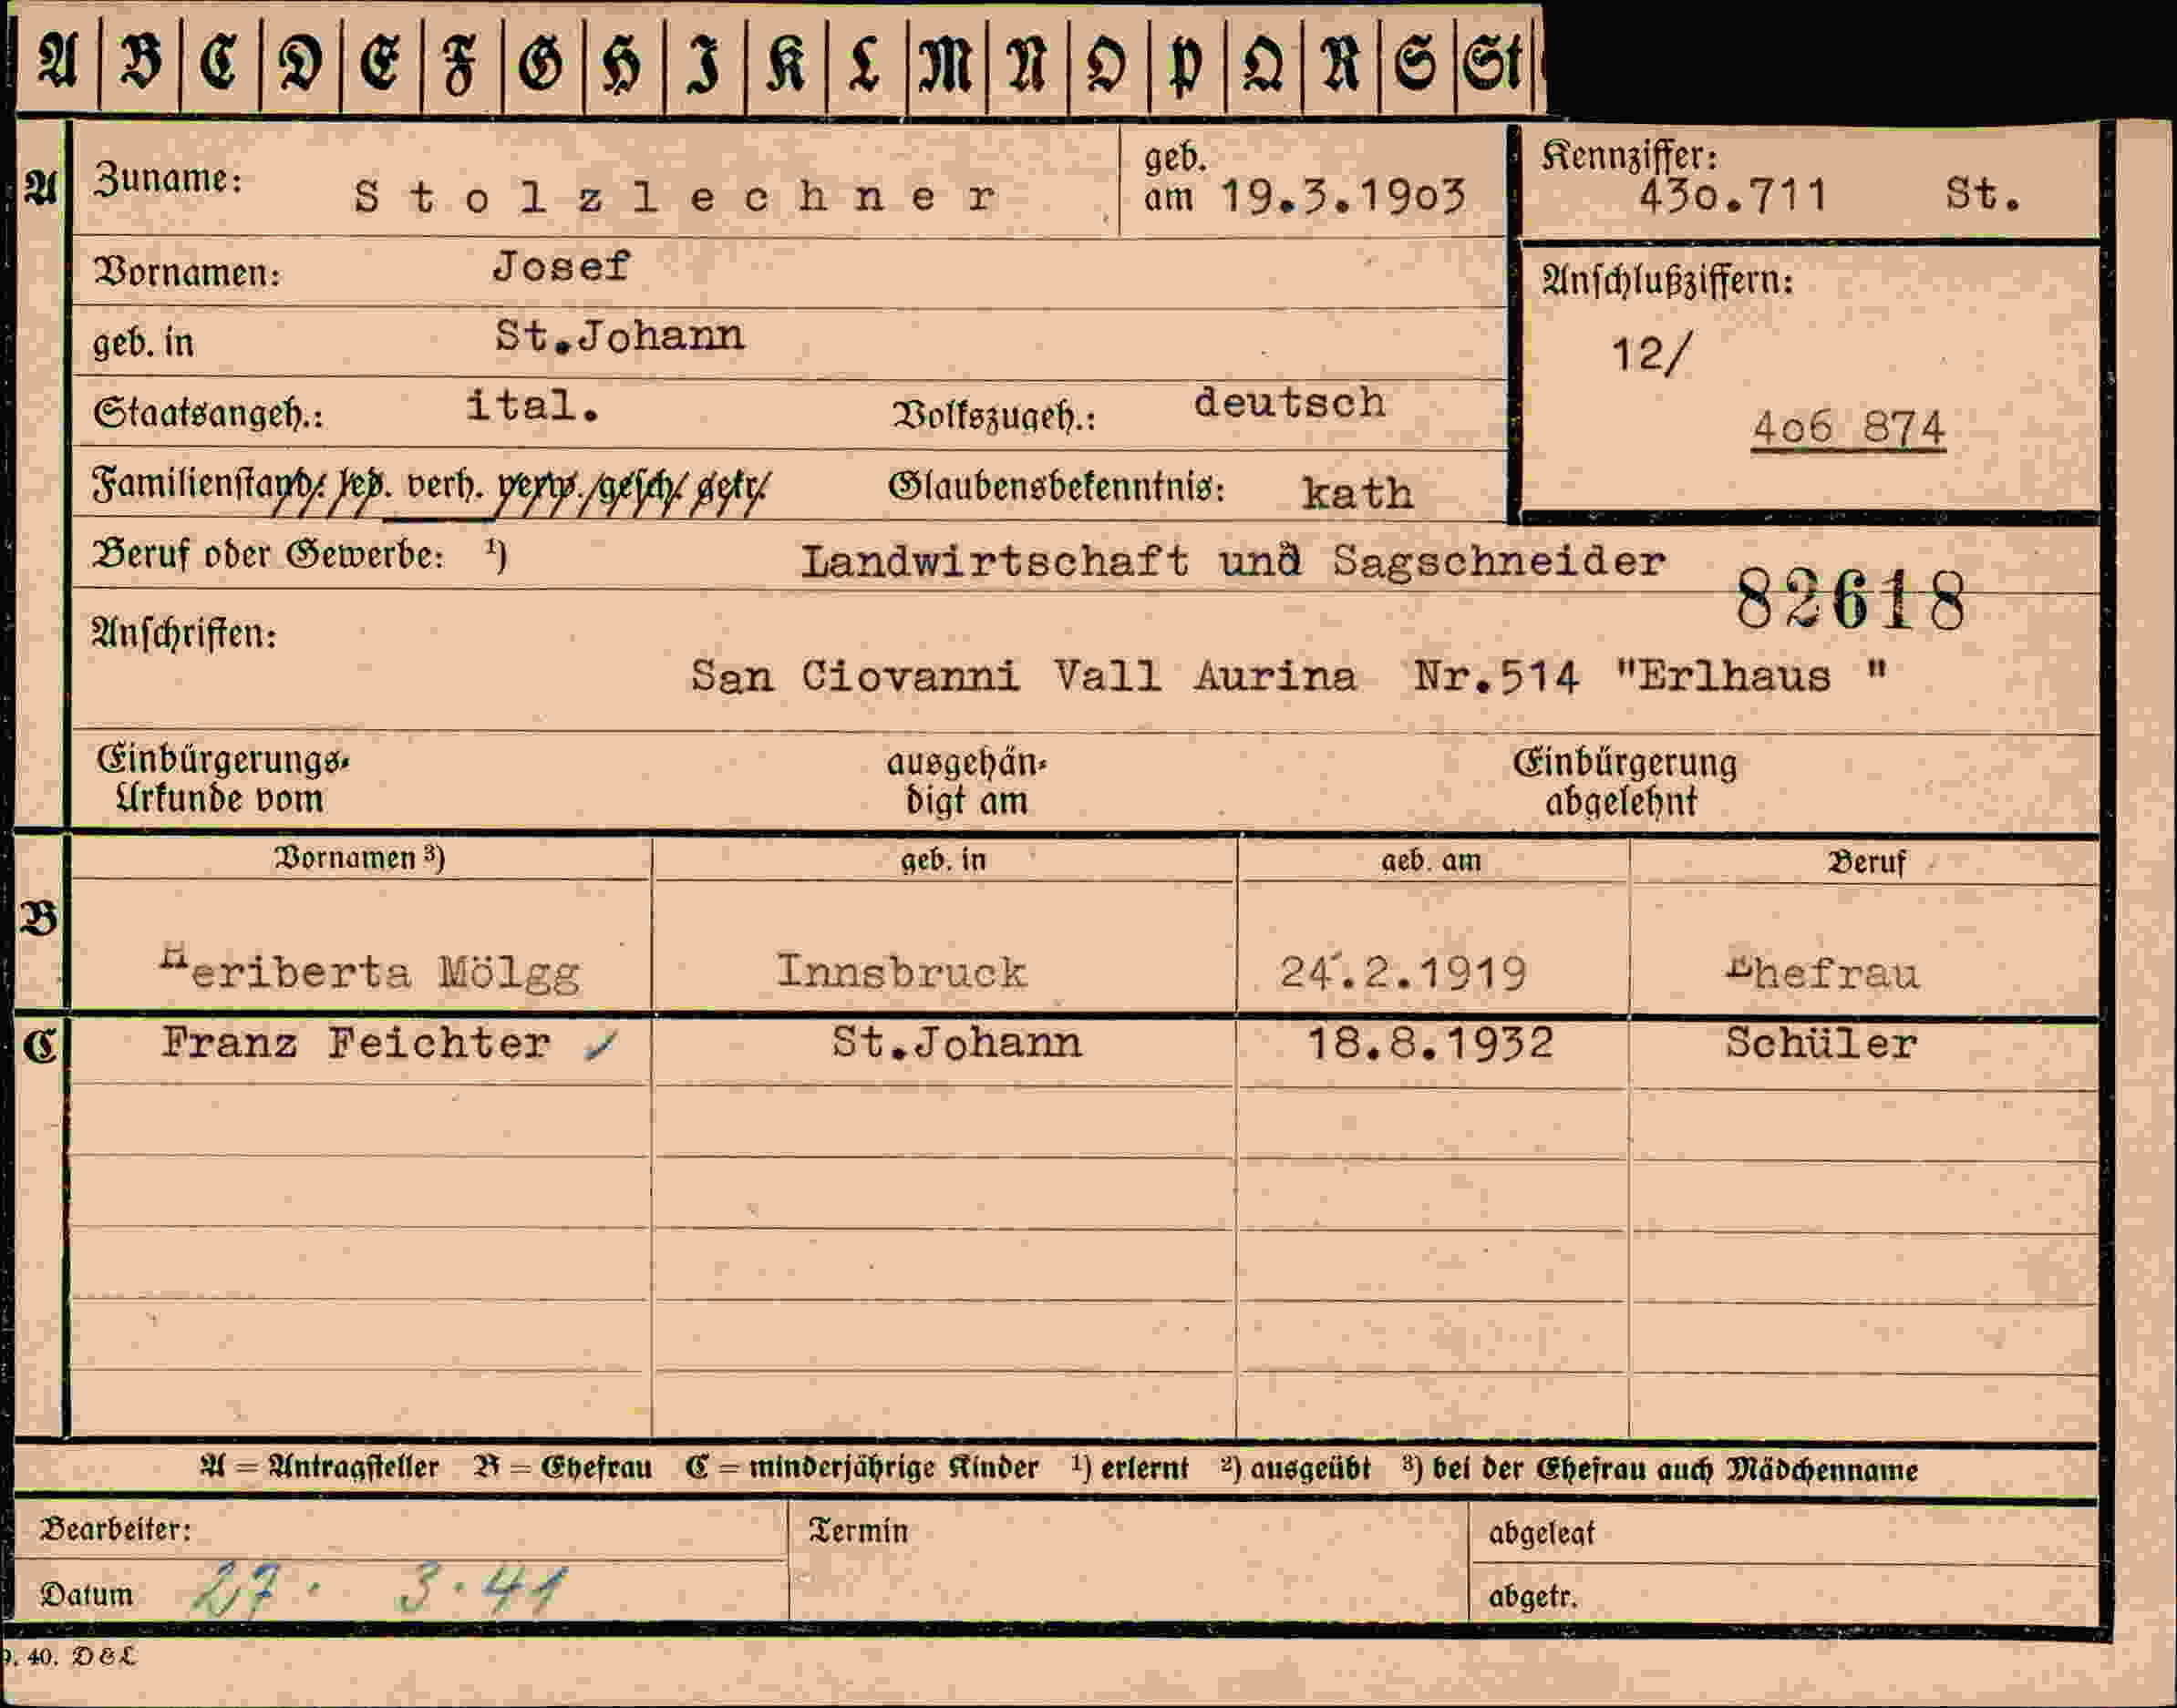 A B C D E F G H I K L M N O P Q R S St
A Zuname: Stolzlechner geb. am 19.3.1903 Kennziffer: 430.711 St.
Vornamen: Josef
Anschlußziffern:
geb. in St.Johann
12/
Staatsangeh.: ital. Volkszugeh.: deutsch
4o6 874
Familienstand: led. verh. verw. gesch. getr. Glaubensbekenntnis: kath
Beruf oder Gewerbe: ¹) Landwirtschaft und Sagschneider
82618
Anschriften:
San Ciovanni Vall Aurina Nr.514 "Erlhaus "
Einbürgerungs- ausgehän- Einbürgerung
Urkunde vom digt am abgelehnt
Vornamen ³) geb. in geb. am Beruf
B
Heriberta Mölgg Innsbruck 24.2.1919 Ehefrau
C Franz Feichter St.Johann 18.8.1932 Schüler
A = Antragsteller B = Ehefrau C = minderjährige Kinder ¹) erlernt ²) ausgeübt ³) bei der Ehefrau auch Mädchenname
Bearbeiter: Termin abgelegt
Datum 27. 3.41 abgetr.
40. D & L